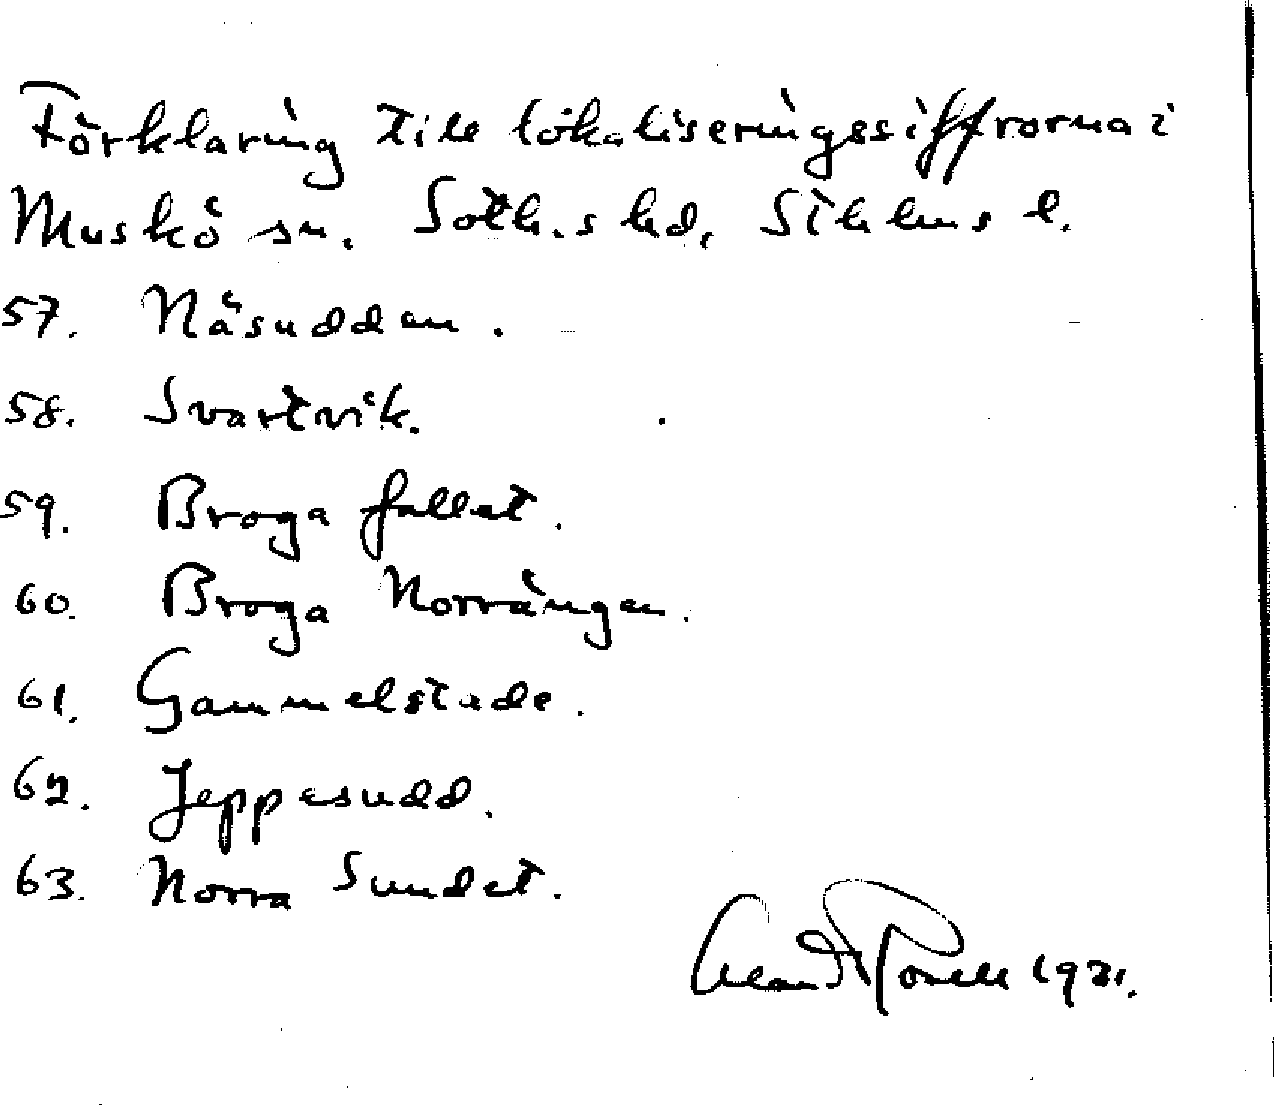 Förklaring till lokaliseringssiffrorna i
Muskö sn. Soth.s hd, Sthlms l.
57. Näsudden.
58. Svartvik.
59. Broga fallet.
60. Broga Norrängen.
61. Gammelstade.
62. Jeppesudd.
63. Norra Sundet.
1921.